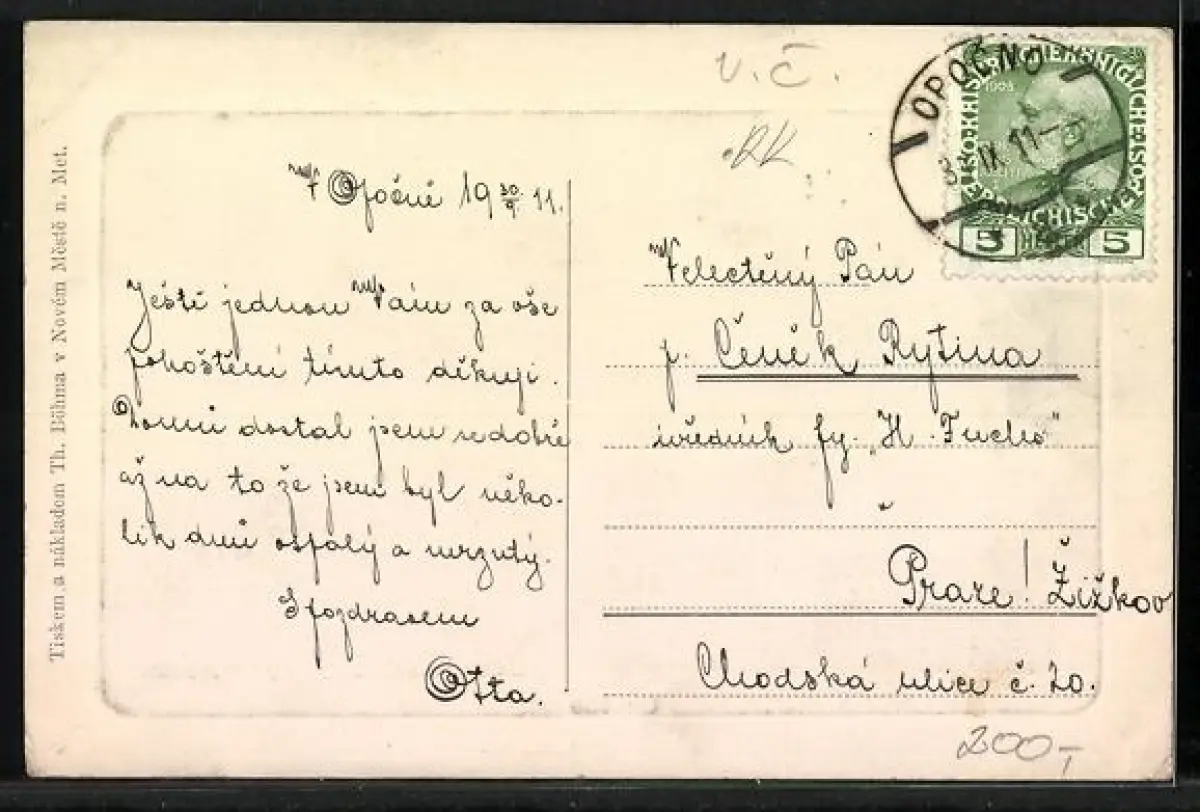 V.Č.
RK
V Opočně 19 30/9 11.
Ještě jednou Vám za vše
pohoštění tímto děkuji.
Domů dostal jsem se dobře
až na to že jsem byl něko-
lik dnů ospalý a mrzutý.
S pozdravem
Otta.
Velectěný Pán
p. Čeněk Rytina
úředník fy. „H. Fuchs"
v
Praze! Žižkov
Chodská ulice č. 20.
200,-
OPOČNO
IX 11
1908
5 HELLER 5
Tiskem a nákladem Th. Böhma v Novém Městě n. Met.